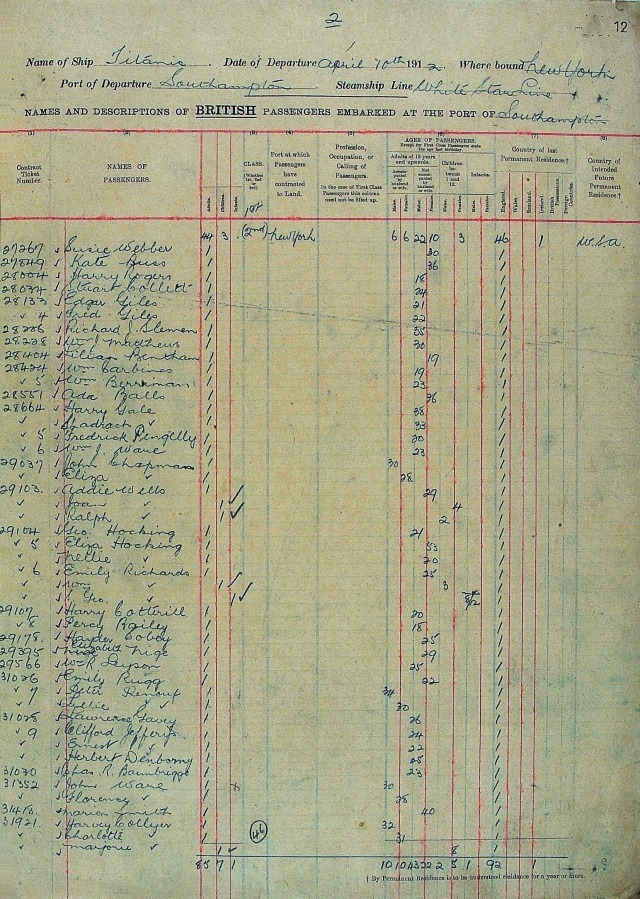 2
12
Name of Ship Titanic Date of Departure April 10th 1912 Where bound New York
Port of Departure Southampton Steamship Line White Star Line
NAMES AND DESCRIPTIONS OF BRITISH PASSENGERS EMBARKED AT THE PORT OF Southampton
(1) (2) (3) (4) (5) (6) (7) (8)
Contract Ticket Number. NAMES OF PASSENGERS. CLASS. (Whether 1st, 2nd, or 3rd) Port at which Passengers have contracted to Land. Profession, Occupation, or Calling of Passengers. In the case of First Class Passengers this column need not be filled up. AGES OF PASSENGERS. Adults of 12 years and upwards. Children between 1 and 12. Infants. Country of last Permanent Residence.† Country of Intended Future Permanent Residence.†
Adults. Children. Infants. Accompanied by husband or wife. Not accompanied by husband or wife. Males. Females. Males. Females. Males. Females. Males. Females. England. Wales. Scotland. Ireland. British Possessions. Foreign Countries.
44 3 (2nd) New York 6 6 22 10 3 46 1 U.S.A.
27267 Susie Webber 1
27849 Kate Buss 1 36
28004 Harry Rogers 1 18
28034 Stuart Collett 1 24
28133 Edgar Giles 1 21
4 Fred Giles 1 22
28206 Richard J. Slemen 1 35
28228 Wm J. Matthews 1 30
28404 Lilian Bentham 1 19
28424 Wm Carbines 1 19
5 Wm Berriman 1 23
28551 Ada Balls 1 36
28664 Harry Gale 1 38
Shadrach 1 33
5 Fredrick Pengelly 1 20
6 Wm J. Ware 1 23
29037 John Chapman 1 30
Eliza 1 28
29103. Addie Wells 1 29
Joan 1 4
Ralph 1 2
29104 Geo. Hocking 1 21
5 Eliza Hocking 1 53
Nellie 1 20
6 Emily Richards 1 25
Wm 1 3
Geo. 1
29107 Harry Cotterill 1 20
8 Percy Bailey 1 18
29178. Hayden Cobey 1 25
29395 Elizabeth Nige 1 29
29566 Wm R. Leyson 1 25
31026 Emily Rugg 1 22
7 Peter Renouf 1 34
Lillie 1 30
31028 Lawrence Gavey 1 26
9 Clifford Jefferys 1 24
Ernest 1 22
Herbert Denbouy 1 25
31030 Chas R. Baimbrigge 1 23
31352 John Ware 1 30
Florence 1 28
31418. Marion Smith 1 40
31921. Harvey Collyer 1 32
Charlotte 1 31
46
Marjorie 1 8
85 7 1 10 10 43 22 2 5 1 92 1
† By Permanent Residence is to be understood residence for a year or more.